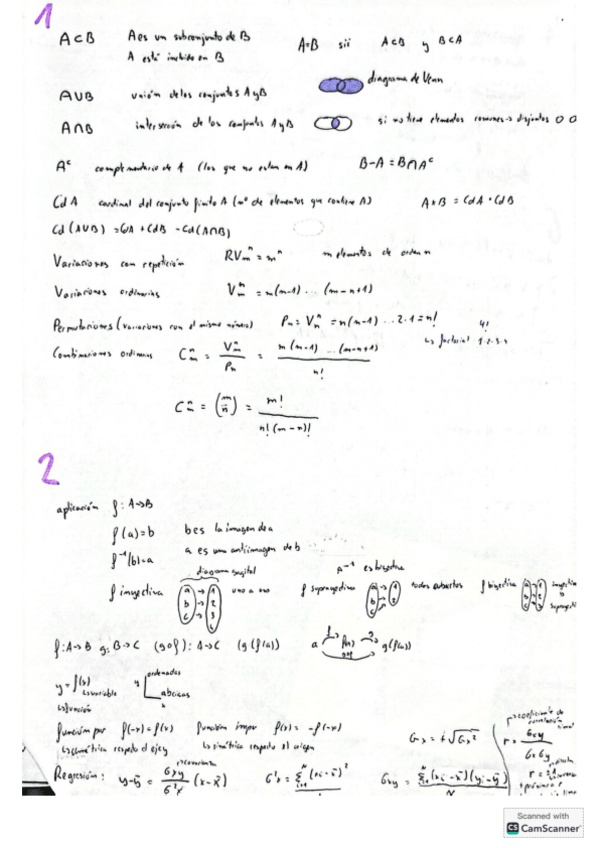 1
A⊂B   A es un subconjunto de B   A=B sii A⊂B y B⊂A
A está incluido en B
A∪B   unión de los conjuntos A y B   diagrama de Venn
A∩B   intersección de los conjuntos A y B   si no tiene elementos comunes → disjuntos
Aᶜ   complementario de A (los que no estan en A)   B-A = B∩Aᶜ
Cd A   cardinal del conjunto finito A (nº de elementos que contiene A)   A×B = CdA · CdB
Cd (A∪B) = CdA + CdB - Cd(A∩B)
Variaciones con repetición   RVₘⁿ = mⁿ   m elementos de orden n
Variaciones ordinarias   Vₘⁿ = m(m-1) ... (m-n+1)
Permutaciones (variaciones con el mismo número)   Pₙ = Vₙⁿ = n(n-1) ... 2·1 = n!   4!
↳ factorial 1·2·3·4
Combinaciones ordinarias   Cₘⁿ = Vₘⁿ / Pₙ = m(m-1) ... (m-n+1) / n!
Cₘⁿ = (m n) = m! / n!(m-n)!
2
aplicación f: A→B
f(a)=b   b es la imagen de a
f⁻¹(b)=a   a es una antiimagen de b
diagrama sagital   es biyectiva
f inyectiva   a b c   1 2 3 4   uno a uno   f suprayectiva   todos cubiertos   f biyectiva   inyectiva
suprayecti
f: A→B g: B→C (g∘f): A→C (g(f(a))   a   f   f(a)   g   g(f(a))   g∘f
y = f(x)   ↳ variable   ↳ función   y   ordenadas   abcisas
función par f(-x) = f(x)   función impar f(x) = -f(-x)
↳ simétrica respecto el eje y   ↳ simétrica respecto al origen
σx = +√σx²   r = σxy / σxσy   coeficiente de correlación
Regresión: y-ȳ = σxy / σ²x (x-x̄)   covarianza   σ²x = Σ (xi-x̄)²   σxy = Σ (xi-x̄)(yi-ȳ) / N
Scanned with
CS CamScanner